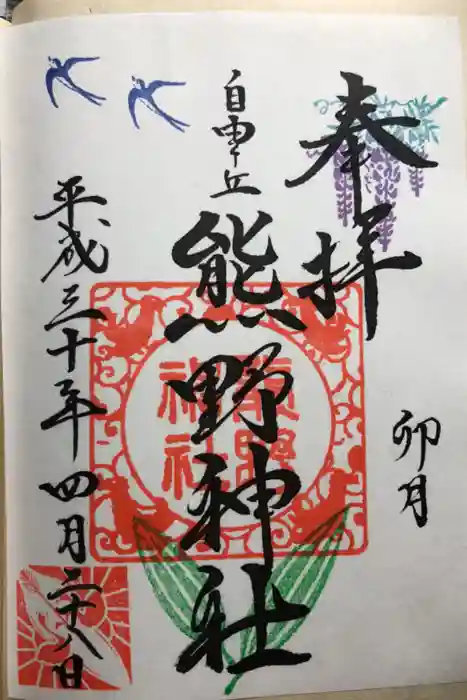 奉拝
卯月
自由ヶ丘
熊野神社
熊野
神社
平成三十年四月二十八日